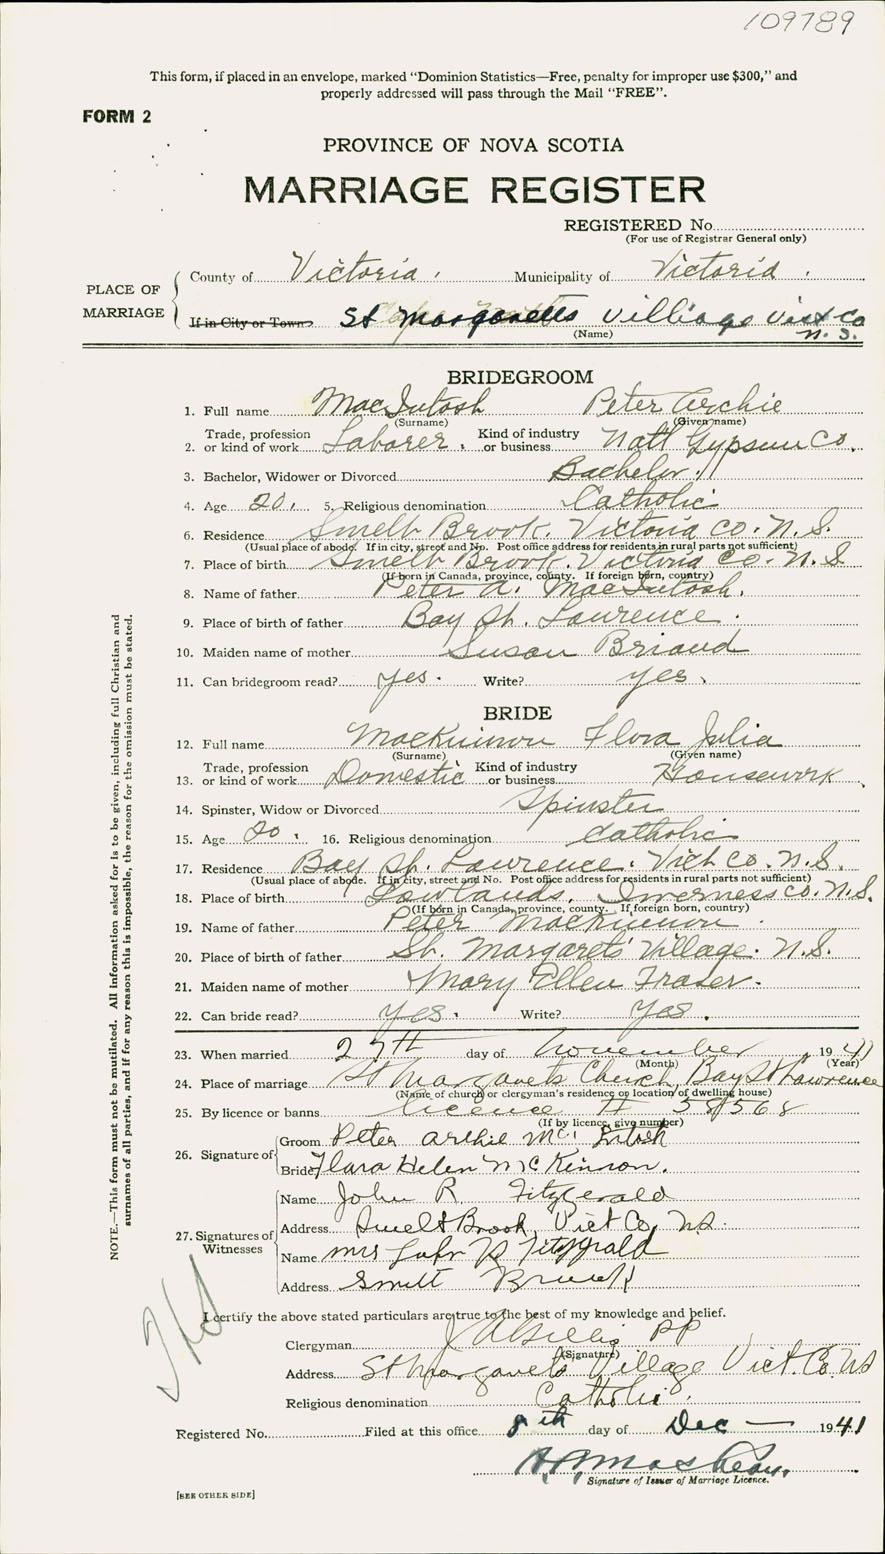 109789
This form, if placed in an envelope, marked "Dominion Statistics—Free, penalty for improper use $300," and
properly addressed will pass through the Mail "FREE".
FORM 2
PROVINCE OF NOVA SCOTIA
MARRIAGE REGISTER
REGISTERED No.
(For use of Registrar General only)
PLACE OF MARRIAGE
County of Victoria. Municipality of Victoria.
If in City or Town St Margarets Villiage Vict Co
(Name) N. S.
BRIDEGROOM
1. Full name MacIntosh Peter Archie
(Surname) (Given name)
2. Trade, profession or kind of work Laborer. Kind of industry or business Natl Gypsum Co.
3. Bachelor, Widower or Divorced Bachelor.
4. Age 20. 5. Religious denomination Catholic
6. Residence Smelt Brook. Victoria Co. N. S.
(Usual place of abode. If in city, street and No. Post office address for residents in rural parts not sufficient)
7. Place of birth Smelt Brook. Victoria Co. N. S
(If born in Canada, province, county. If foreign born, country)
8. Name of father Peter A. MacIntosh.
9. Place of birth of father Bay St. Lawrence.
10. Maiden name of mother Susan Briand
11. Can bridegroom read? yes. Write? yes.
BRIDE
12. Full name MacKinnon Flora Julia
(Surname) (Given name)
13. Trade, profession or kind of work Domestic Kind of industry or business Housework
14. Spinster, Widow or Divorced Spinster
15. Age 20. 16. Religious denomination Catholic
17. Residence Bay St. Lawrence. Vict Co. N. S.
(Usual place of abode. If in city, street and No. Post office address for residents in rural parts not sufficient)
18. Place of birth Lowlands, Inverness Co. N. S.
(If born in Canada, province, county. If foreign born, country)
19. Name of father Peter MacKinnon.
20. Place of birth of father St. Margarets' Village. N. S.
21. Maiden name of mother Mary Ellen Fraser.
22. Can bride read? Yes. Write? Yes.
23. When married 27th day of November 1941
(Month) (Year)
24. Place of marriage St Margarets Church, Bay St Lawrence
(Name of church or clergyman's residence or location of dwelling house)
25. By licence or banns licence A 58568
(If by licence, give number)
26. Signature of
Groom Peter Archie Mc Intosh
Bride Flora Helen McKinnon.
27. Signatures of Witnesses
Name John R Fitzgerald
Address Smelt Brook, Vict Co, N.S.
Name Mrs John R Fitzgerald
Address Smelt Brook
I certify the above stated particulars are true to the best of my knowledge and belief.
Clergyman J A Gillis PP
(Signature)
Address St Margarets Village Vict. Co. NS
Religious denomination Catholic.
Registered No. Filed at this office 8th day of Dec 1941
Signature of Issuer of Marriage Licence.
[SEE OTHER SIDE]
NOTE.—This form must not be mutilated. All information asked for is to be given, including full Christian and
surnames of all parties, and if for any reason this is impossible, the reason for the omission must be stated.